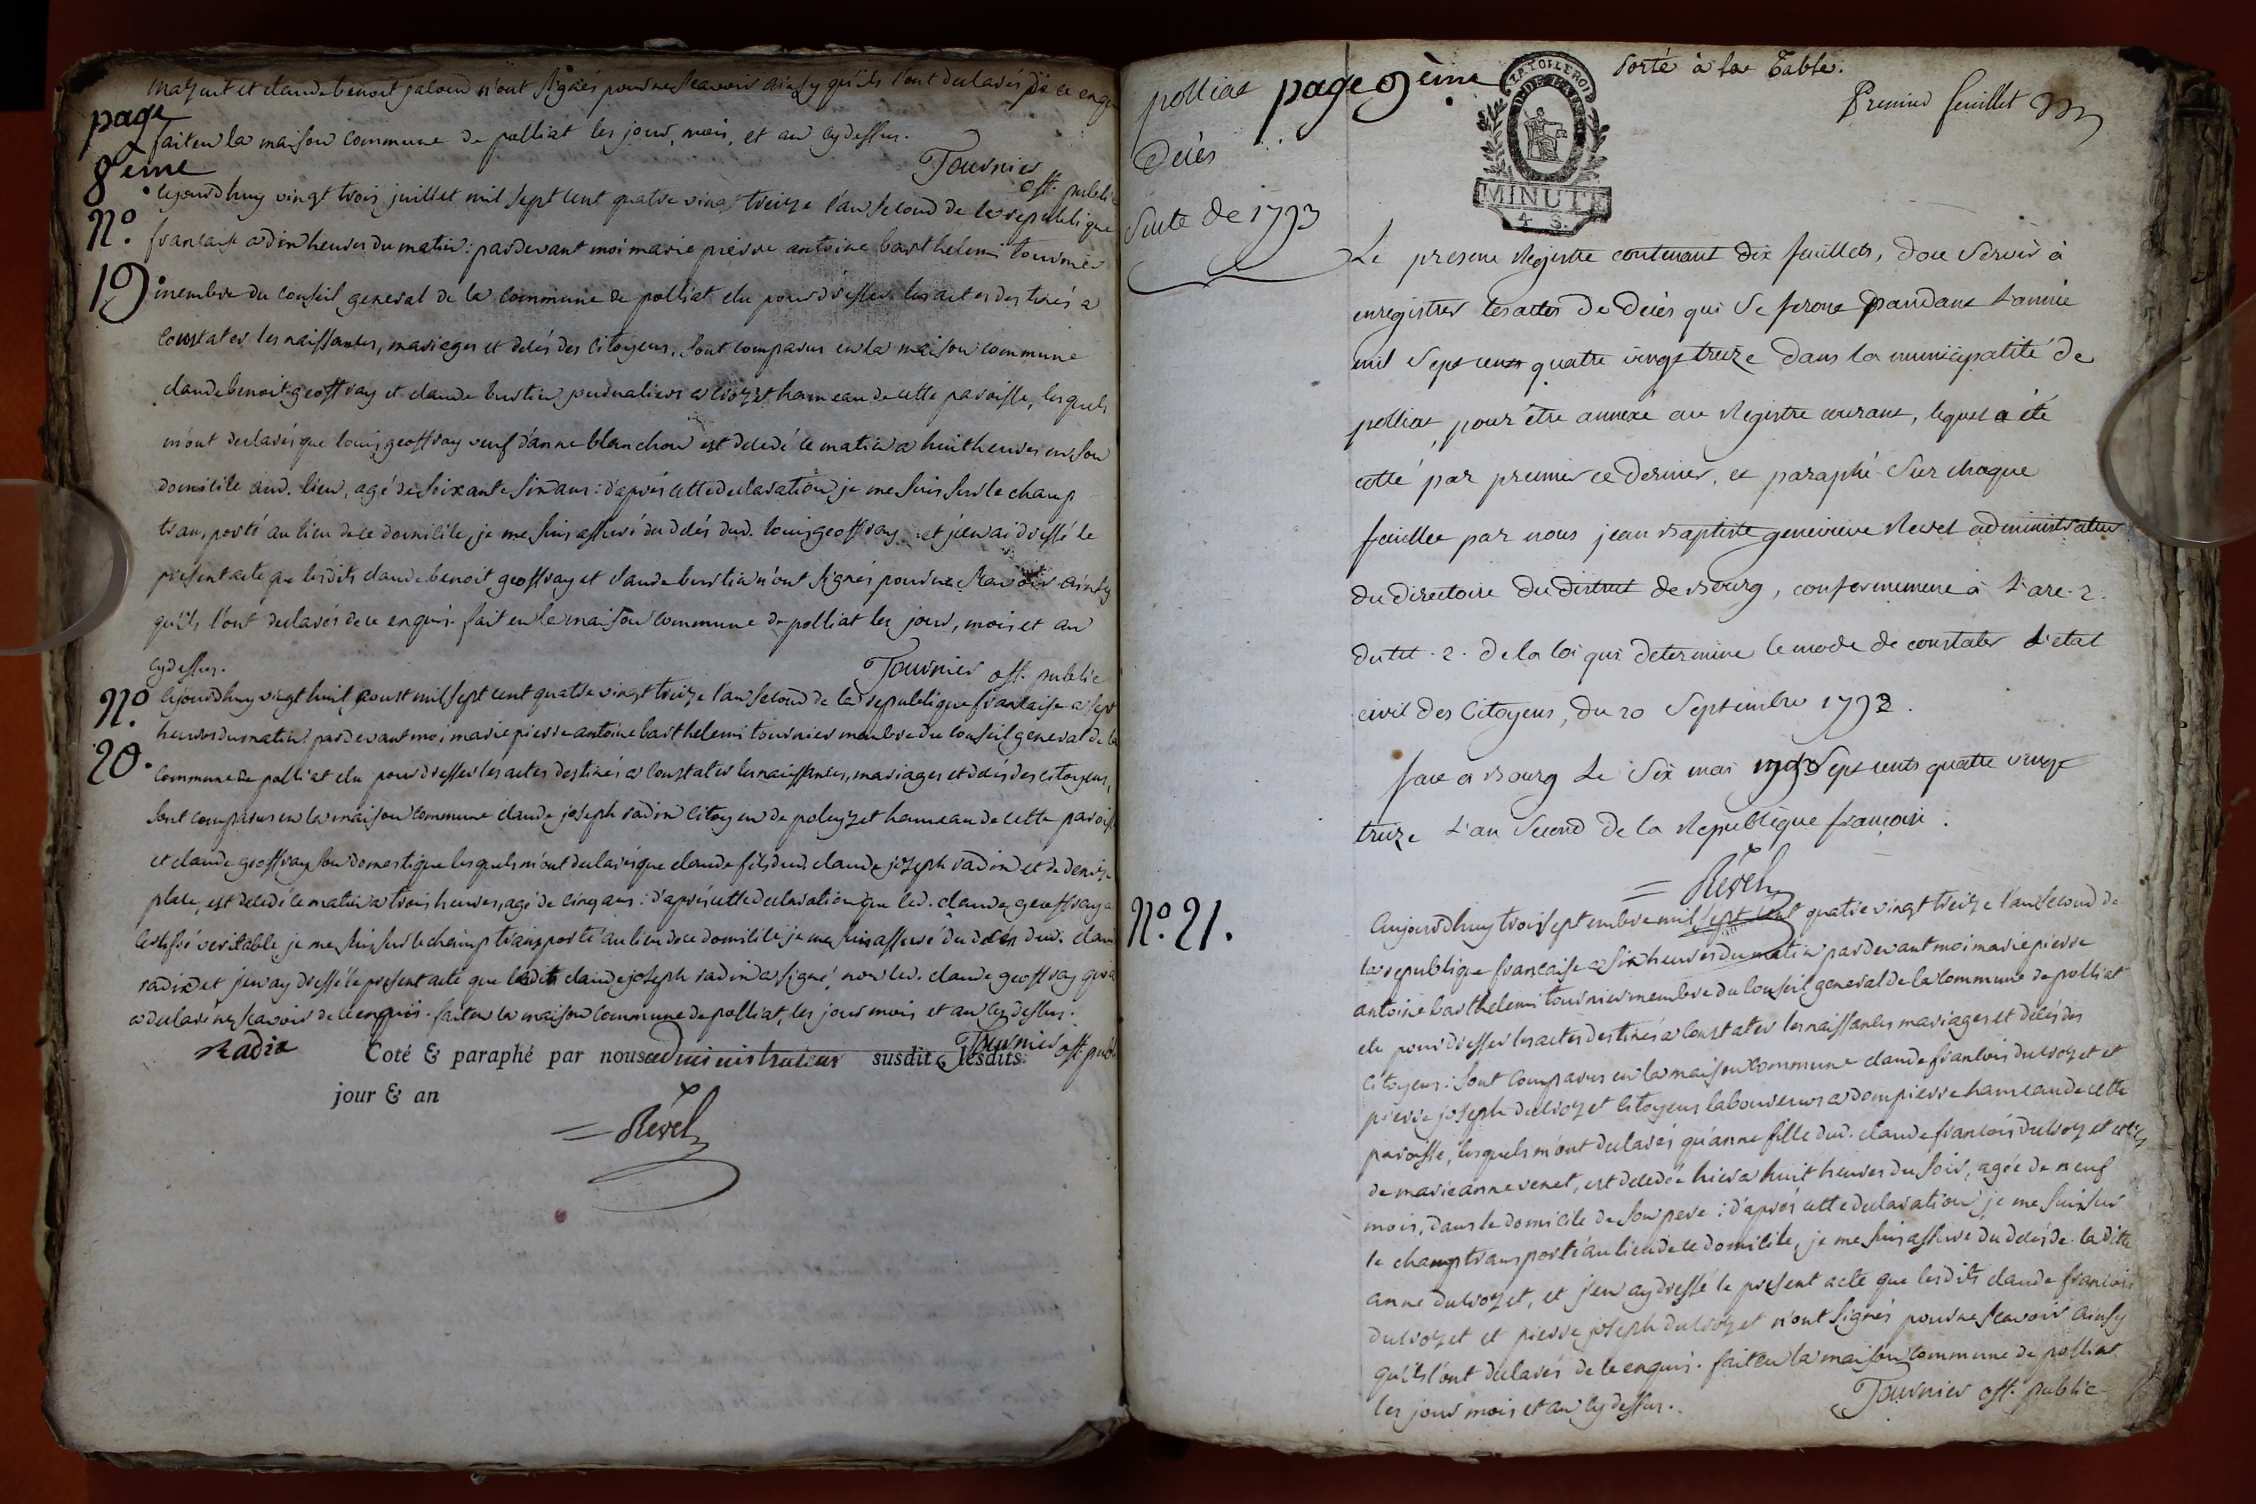 mazuit et claude benoit jaloud n'ont signés pour ne scavoir ainsy qu'ils l'ont declarés de ce enquis
page
fait en la maison commune de polliat les jour, mois, et an cydessus.
8ème
Tournier off. public
Nº. 19
cejourd'huy vingt trois juillet mil sept cent quatre vingt treize l'an second de la republique
francaise a dix heures du matin: pardevant moi marie pierre antoine barthelemi tournier
membre du conseil general de la commune de polliat elu pour dresser les actes destinés a
constater les naissances, mariages et décés des citoyens, sont comparus en la maison commune
claude benoit geoffray et claude burtin journaliers a crozet hameau de cette paroisse, lesquels
m'ont declarés que louis geoffray veuf d'anne blanchon est decedé ce matin a huit heures en son
domicile aud. lieu, agé de soixante six ans: d'après cette declaration je me suis sur le champ
transporté au lieu de ce domicile, je me suis assuré du décés dud. louis geoffray et j'en ai dressé le
present acte que lesdits claude benoit geoffray et claude burtin n'ont signés pour ne scavoir ainsy
qu'ils l'ont declarés de ce enquis. fait en la maison commune de polliat les jour, mois et an
cydessus.
Tournier off. public
Nº 20.
cejourd'huy vingt huit aoust mil sept cent quatre vingt treize l'an second de la republique francaise a sept
heures du matin pardevant moi marie pierre antoine barthelemi tournier membre du conseil general de la
commune de polliat elu pour dresser les actes destinés a constater les naissances, mariages et décés des citoyens,
sont comparus en la maison commune claude joseph radix citoyen de poleyzet hameau de cette paroisse
et claude geoffray son domestique lesquels m'ont declarés que claude fils dud. claude joseph radix et de denise
place, est decedé ce matin a trois heures, agé de cinq ans: d'après cette declaration que led. claude geoffray a
certifié veritable je me suis sur le champ transporté au lieu de ce domicile je me suis assuré du décés dud. claude
radix et j'en ay dressé le present acte que ledit claude joseph radix a signé, non led. claude geoffray qui a
a declaré ne scavoir de ce enquis. fait en la maison commune de polliat, les jour mois et an cy dessus.
Radix
Tournier off. public
Coté & paraphé par nous administrateur susdit, lesdits
jour & an
= Révél
polliat page 9ème
Porté à la Table.
Premier feuillet
LA LOI LE ROI
MINUTE
4. S.
Décès
Suite de 1793
Le present Registre contenant dix feuillets, doit servir à
enregistrer les actes de décès qui se feront pandant l'année
mil sept cent quatre vingt treize dans la municipalité de
polliat, pour être annexé au Registre courant, lequel a été
cotté par premier et dernier, et paraphé sur chaque
feuillet par nous jean Baptiste genevieve Revel administrateur
du directoire du district de Bourg, conformement à l'art. 2.
du tit. 2. de la loi qui determine le mode de constater l'etat
civil des Citoyens, du 20 Septembre 1792.
fait a Bourg Le Six mai Sept cents quatre vingt
treize L'an Second de la Republique françoise.
= Révél
Nº. 21.
Aujourd'huy trois septembre mil sept cent quatre vingt treize l'an second de
la republique francaise a six heures du matin pardevant moi marie pierre
antoine barthelemi tournier membre du conseil general de la commune de polliat
elu pour dresser les actes destinés a constater les naissances mariages et décés des
citoyens: sont comparus en la maison commune claude francois ducrozet et
pierre joseph ducrozet citoyens laboureurs a dompierre hameau de cette
paroisse, lesquels m'ont declarés qu'anne fille dud. claude francois ducrozet et
de marie anne venet, est decedée hier a huit heures du soir, agée de neuf
mois, dans le domicile de son pere: d'après cette declaration je me suis sur
le champ transporté au lieu de ce domicile, je me suis assuré du décés de la dite
anne ducrozet, et j'en ay dressé le present acte que lesdits claude francois
ducrozet et pierre joseph ducrozet n'ont signés pour ne scavoir ainsy
qu'ils l'ont declarés de ce enquis. fait en la maison commune de polliat
les jour mois et an cydessus.
Tournier off. public